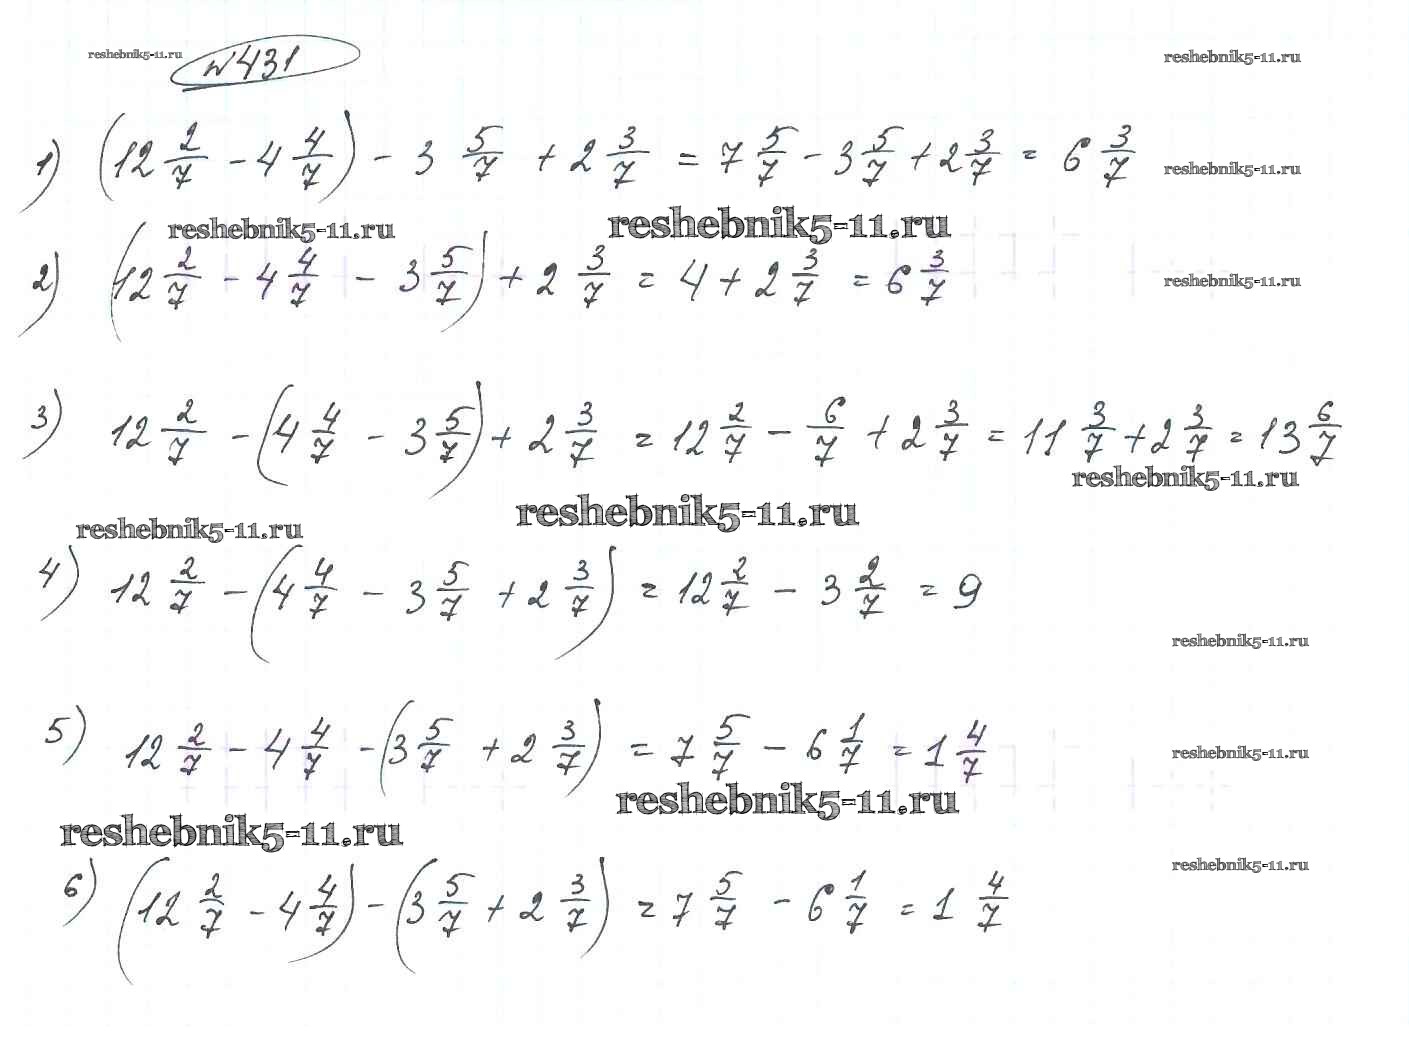 reshebnik5-11.ru №431 reshebnik5-11.ru
1) (12 2/7 - 4 4/7) - 3 5/7 + 2 3/7 = 7 5/7 - 3 5/7 + 2 3/7 = 6 3/7 reshebnik5-11.ru
reshebnik5-11.ru reshebnik5-11.ru
2) (12 2/7 - 4 4/7 - 3 5/7) + 2 3/7 = 4 + 2 3/7 = 6 3/7 reshebnik5-11.ru
3) 12 2/7 - (4 4/7 - 3 5/7) + 2 3/7 = 12 2/7 - 6/7 + 2 3/7 = 11 3/7 + 2 3/7 = 13 6/7
reshebnik5-11.ru
reshebnik5-11.ru reshebnik5-11.ru
4) 12 2/7 - (4 4/7 - 3 5/7 + 2 3/7) = 12 2/7 - 3 2/7 = 9
reshebnik5-11.ru
5) 12 2/7 - 4 4/7 - (3 5/7 + 2 3/7) = 7 5/7 - 6 1/7 = 1 4/7 reshebnik5-11.ru
reshebnik5-11.ru
reshebnik5-11.ru
reshebnik5-11.ru
6) (12 2/7 - 4 4/7) - (3 5/7 + 2 3/7) = 7 5/7 - 6 1/7 = 1 4/7